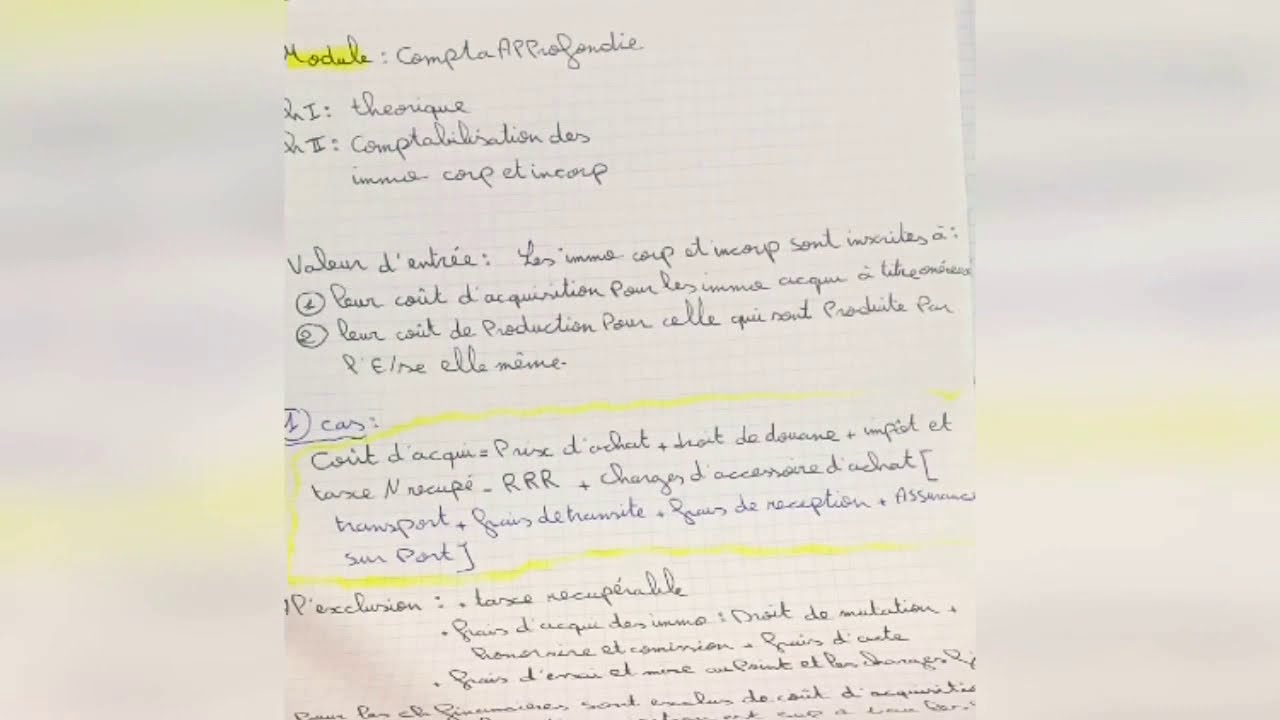 Module : Compta Approfondie
h I : theorique
h II : Comptabilisation des
immo corp et incorp
Valeur d'entrée : Les immo corp et incorp sont inscrites à :
① leur coût d'acquisition Pour les immo acqui à titre onéreux
② leur coût de Production Pour celle qui sont Produite Par
l'E/se elle même.
1) cas :
Coût d'acqui = Prix d'achat + droit de douane + impôt et
taxe N recupé - RRR + charges d'accessoire d'achat [
transport + frais de transite + frais de reception + Assurance
sur Port ]
A l'exclusion : . taxe recupérable
. frais d'acqui des immo : Droit de mutation +
honoraire et comission + frais d'acte
. frais d'essai et mise au Point et les charges
Pour les ch financières sont exclus de coût d'acquisition